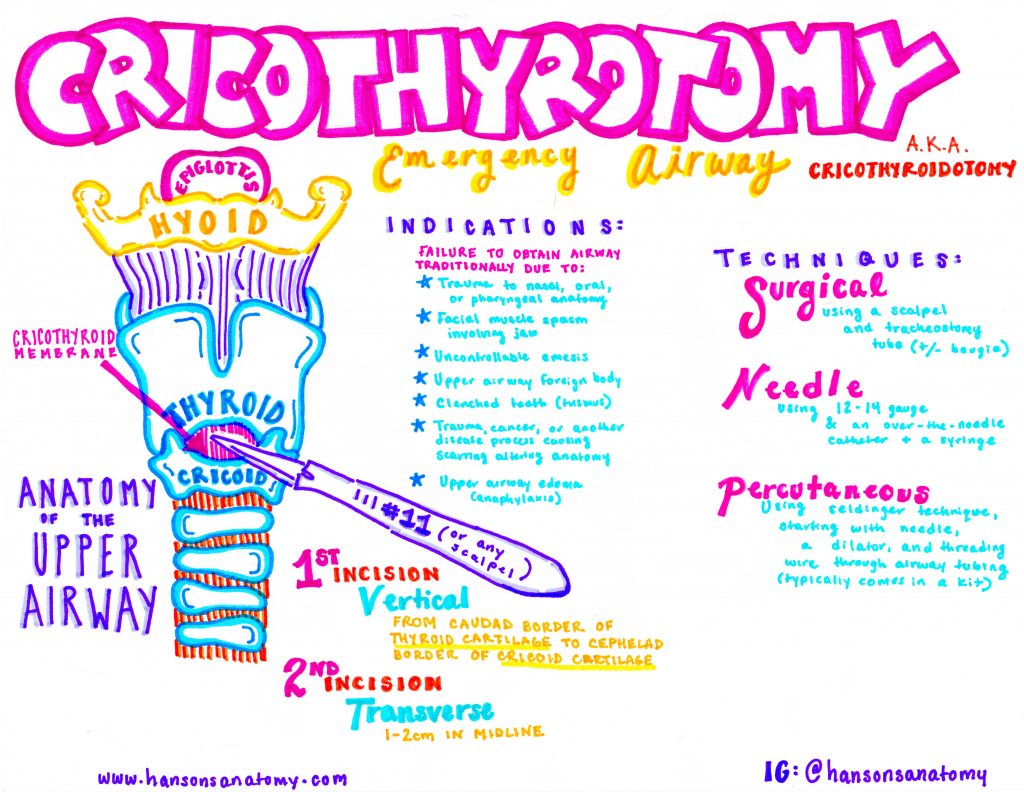 CRICOTHYROTOMY
Emergency Airway
A.K.A.
CRICOTHYROIDOTOMY
EPIGLOTTIS
HYOID
CRICOTHYROID
MEMBRANE
THYROID
CRICOID
ANATOMY
OF THE
UPPER
AIRWAY
#11 (or any
scalpel)
INDICATIONS:
FAILURE TO OBTAIN AIRWAY
TRADITIONALLY DUE TO:
* Trauma to nasal, oral,
or pharyngeal anatomy
* Facial muscle spasm
involving jaw
* Uncontrollable emesis
* Upper airway foreign body
* Clenched teeth (trismus)
* Trauma, cancer, or another
disease process causing
scarring altering anatomy
* Upper airway edema
(anaphylaxis)
1ST INCISION
Vertical
FROM CAUDAD BORDER OF
THYROID CARTILAGE TO CEPHELAD
BORDER OF CRICOID CARTILAGE
2ND INCISION
Transverse
1-2cm IN MIDLINE
TECHNIQUES:
Surgical
using a scalpel
and tracheostomy
tube (+/- bougie)
Needle
using 12-14 gauge
& an over-the-needle
catheter + a syringe
Percutaneous
Using seldinger technique,
starting with needle,
a dilator, and threading
wire through airway tubing
(typically comes in a kit)
www.hansonsanatomy.com
IG: @hansonsanatomy